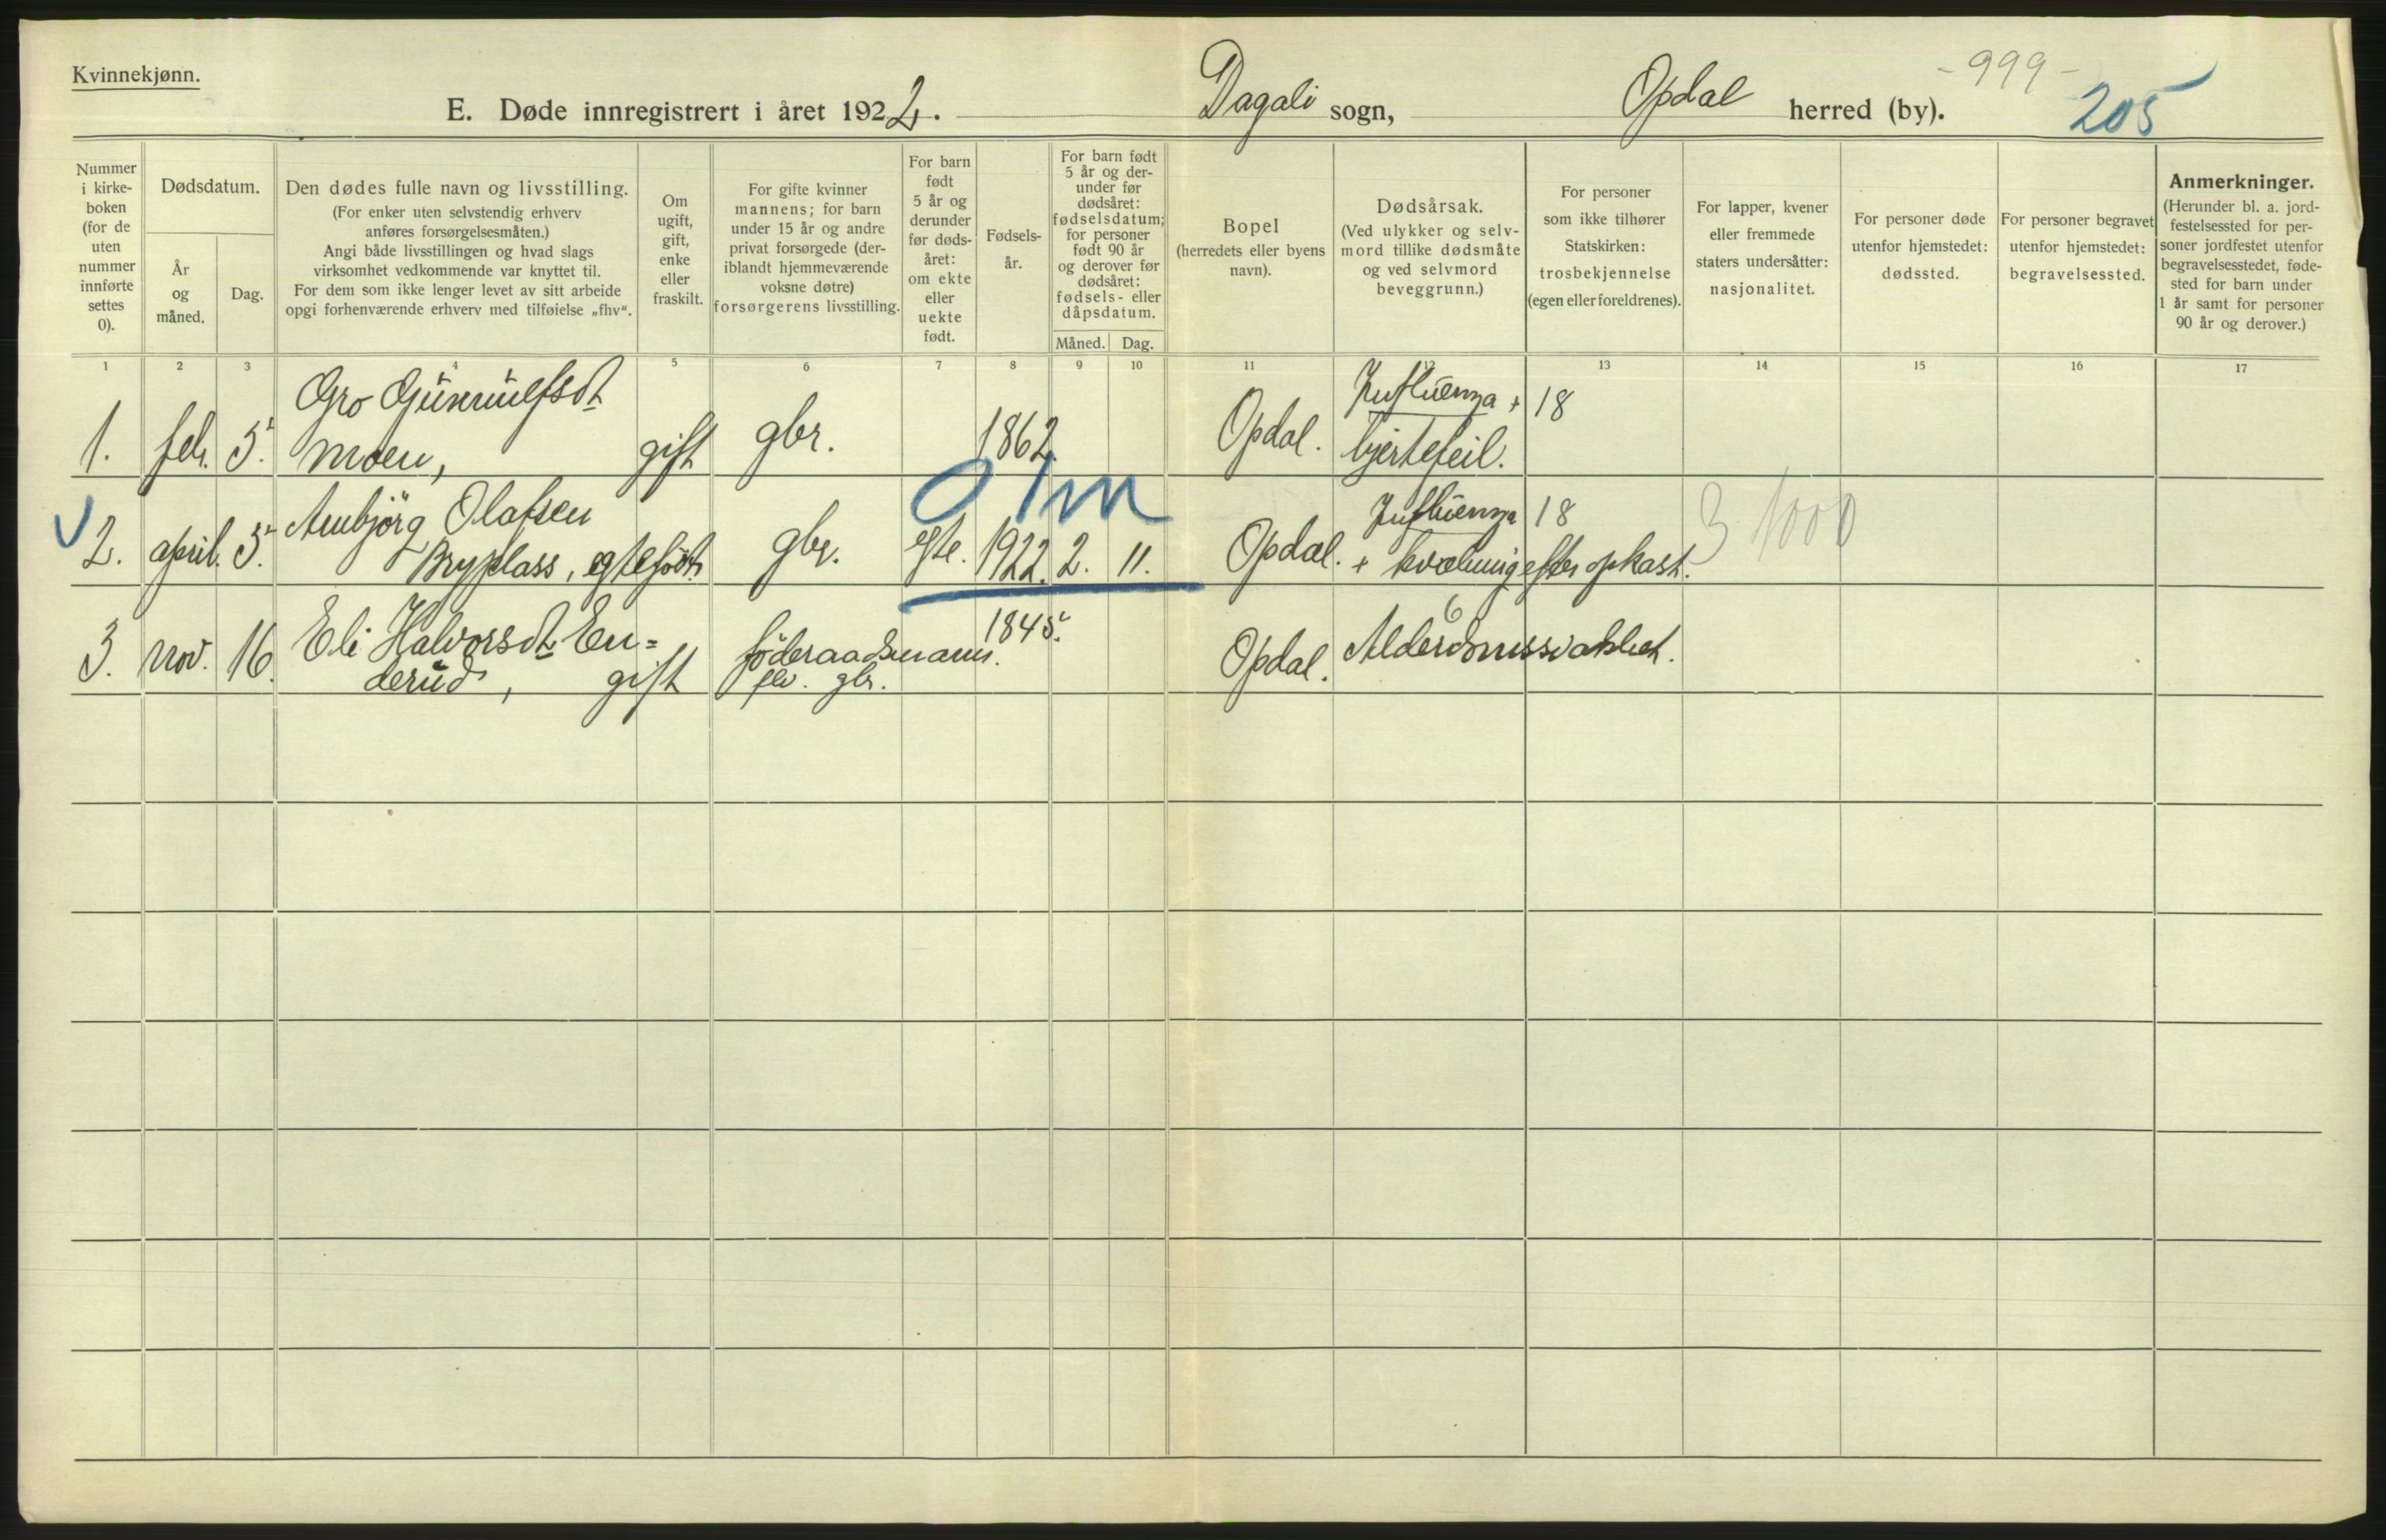 Kvinnekjønn.
E. Døde innregistrert i året 1922. Dagali sogn, Opdal herred (by).
- 999 -
205
Nummer i kirke- boken (for de uten nummer innførte settes 0).
Dødsdatum.
År og måned.
Dag.
Den dødes fulle navn og livsstilling.
(For enker uten selvstendig erhverv
anføres forsørgelsesmåten.)
Angi både livsstillingen og hvad slags
virksomhet vedkommende var knyttet til.
For dem som ikke lenger levet av sitt arbeide
opgi forhenværende erhverv med tilføielse „fhv“.
Om ugift, gift, enke eller fraskilt.
For gifte kvinner
mannens; for barn
under 15 år og andre
privat forsørgede (der-
iblandt hjemmeværende
voksne døtre)
forsørgerens livsstilling.
For barn født 5 år og derunder før døds- året: om ekte eller uekte født.
Fødsels- år.
For barn født
5 år og der-
under før
dødsåret:
fødselsdatum;
for personer
født 90 år
og derover før
dødsåret:
fødsels- eller
dåpsdatum.
Måned. Dag.
Bopel
(herredets eller byens
navn).
Dødsårsak.
(Ved ulykker og selv-
mord tillike dødsmåte
og ved selvmord
beveggrunn.)
For personer
som ikke tilhører
Statskirken:
trosbekjennelse
(egen eller foreldrenes).
For lapper, kvener
eller fremmede
staters undersåtter:
nasjonalitet.
For personer døde
utenfor hjemstedet:
dødssted.
For personer begravet
utenfor hjemstedet:
begravelsessted.
Anmerkninger.
(Herunder bl. a. jord-
festelsessted for per-
soner jordfestet utenfor
begravelsesstedet, føde-
sted for barn under
1 år samt for personer
90 år og derover.)
1 2 3 4 5 6 7 8 9 10 11 12 13 14 15 16 17
Gro Gunnulfsdt Influenza + 18
1. febr. 5. Moen, gift gbr. 1862. Opdal. hjertefeil.
0 1m
Ambjörg Olafsen Influenza 18 3 1000
2. april. 5. Bryplass, egtefödt gbr. egte. 1922. 2. 11. Opdal. + kvælning efter opkast.
Eli Halvorsdt En= föderaadsmann. 1845. 6
3. nov. 16. derud, gift flv. gbr. Opdal. Alderdomssvakhet.